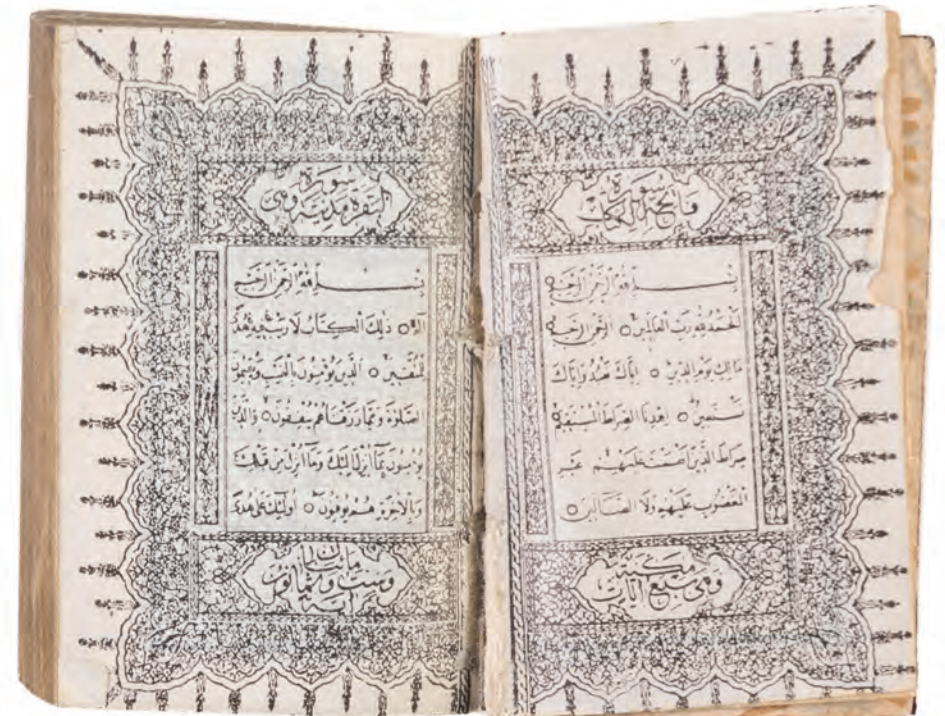 سورة
فاتحة الكتاب
بسم الله الرحمن الرحيم
الحمد لله رب العالمين الرحمن الرحيم
مالك يوم الدين اياك نعبد واياك
نستعين اهدنا الصراط المستقيم
صراط الذين انعمت عليهم غير
المغضوب عليهم ولا الضالين
مكية
وهي سبع آيات
سورة
البقرة مدنية وهي
بسم الله الرحمن الرحيم
الم ذلك الكتاب لا ريب فيه هدى
للمتقين الذين يؤمنون بالغيب ويقيمون
الصلوة ومما رزقناهم ينفقون والذين
يؤمنون بما انزل اليك وما انزل من قبلك
وبالآخرة هم يوقنون اولئك على هدى
مائتان
وست وثمانون
آية